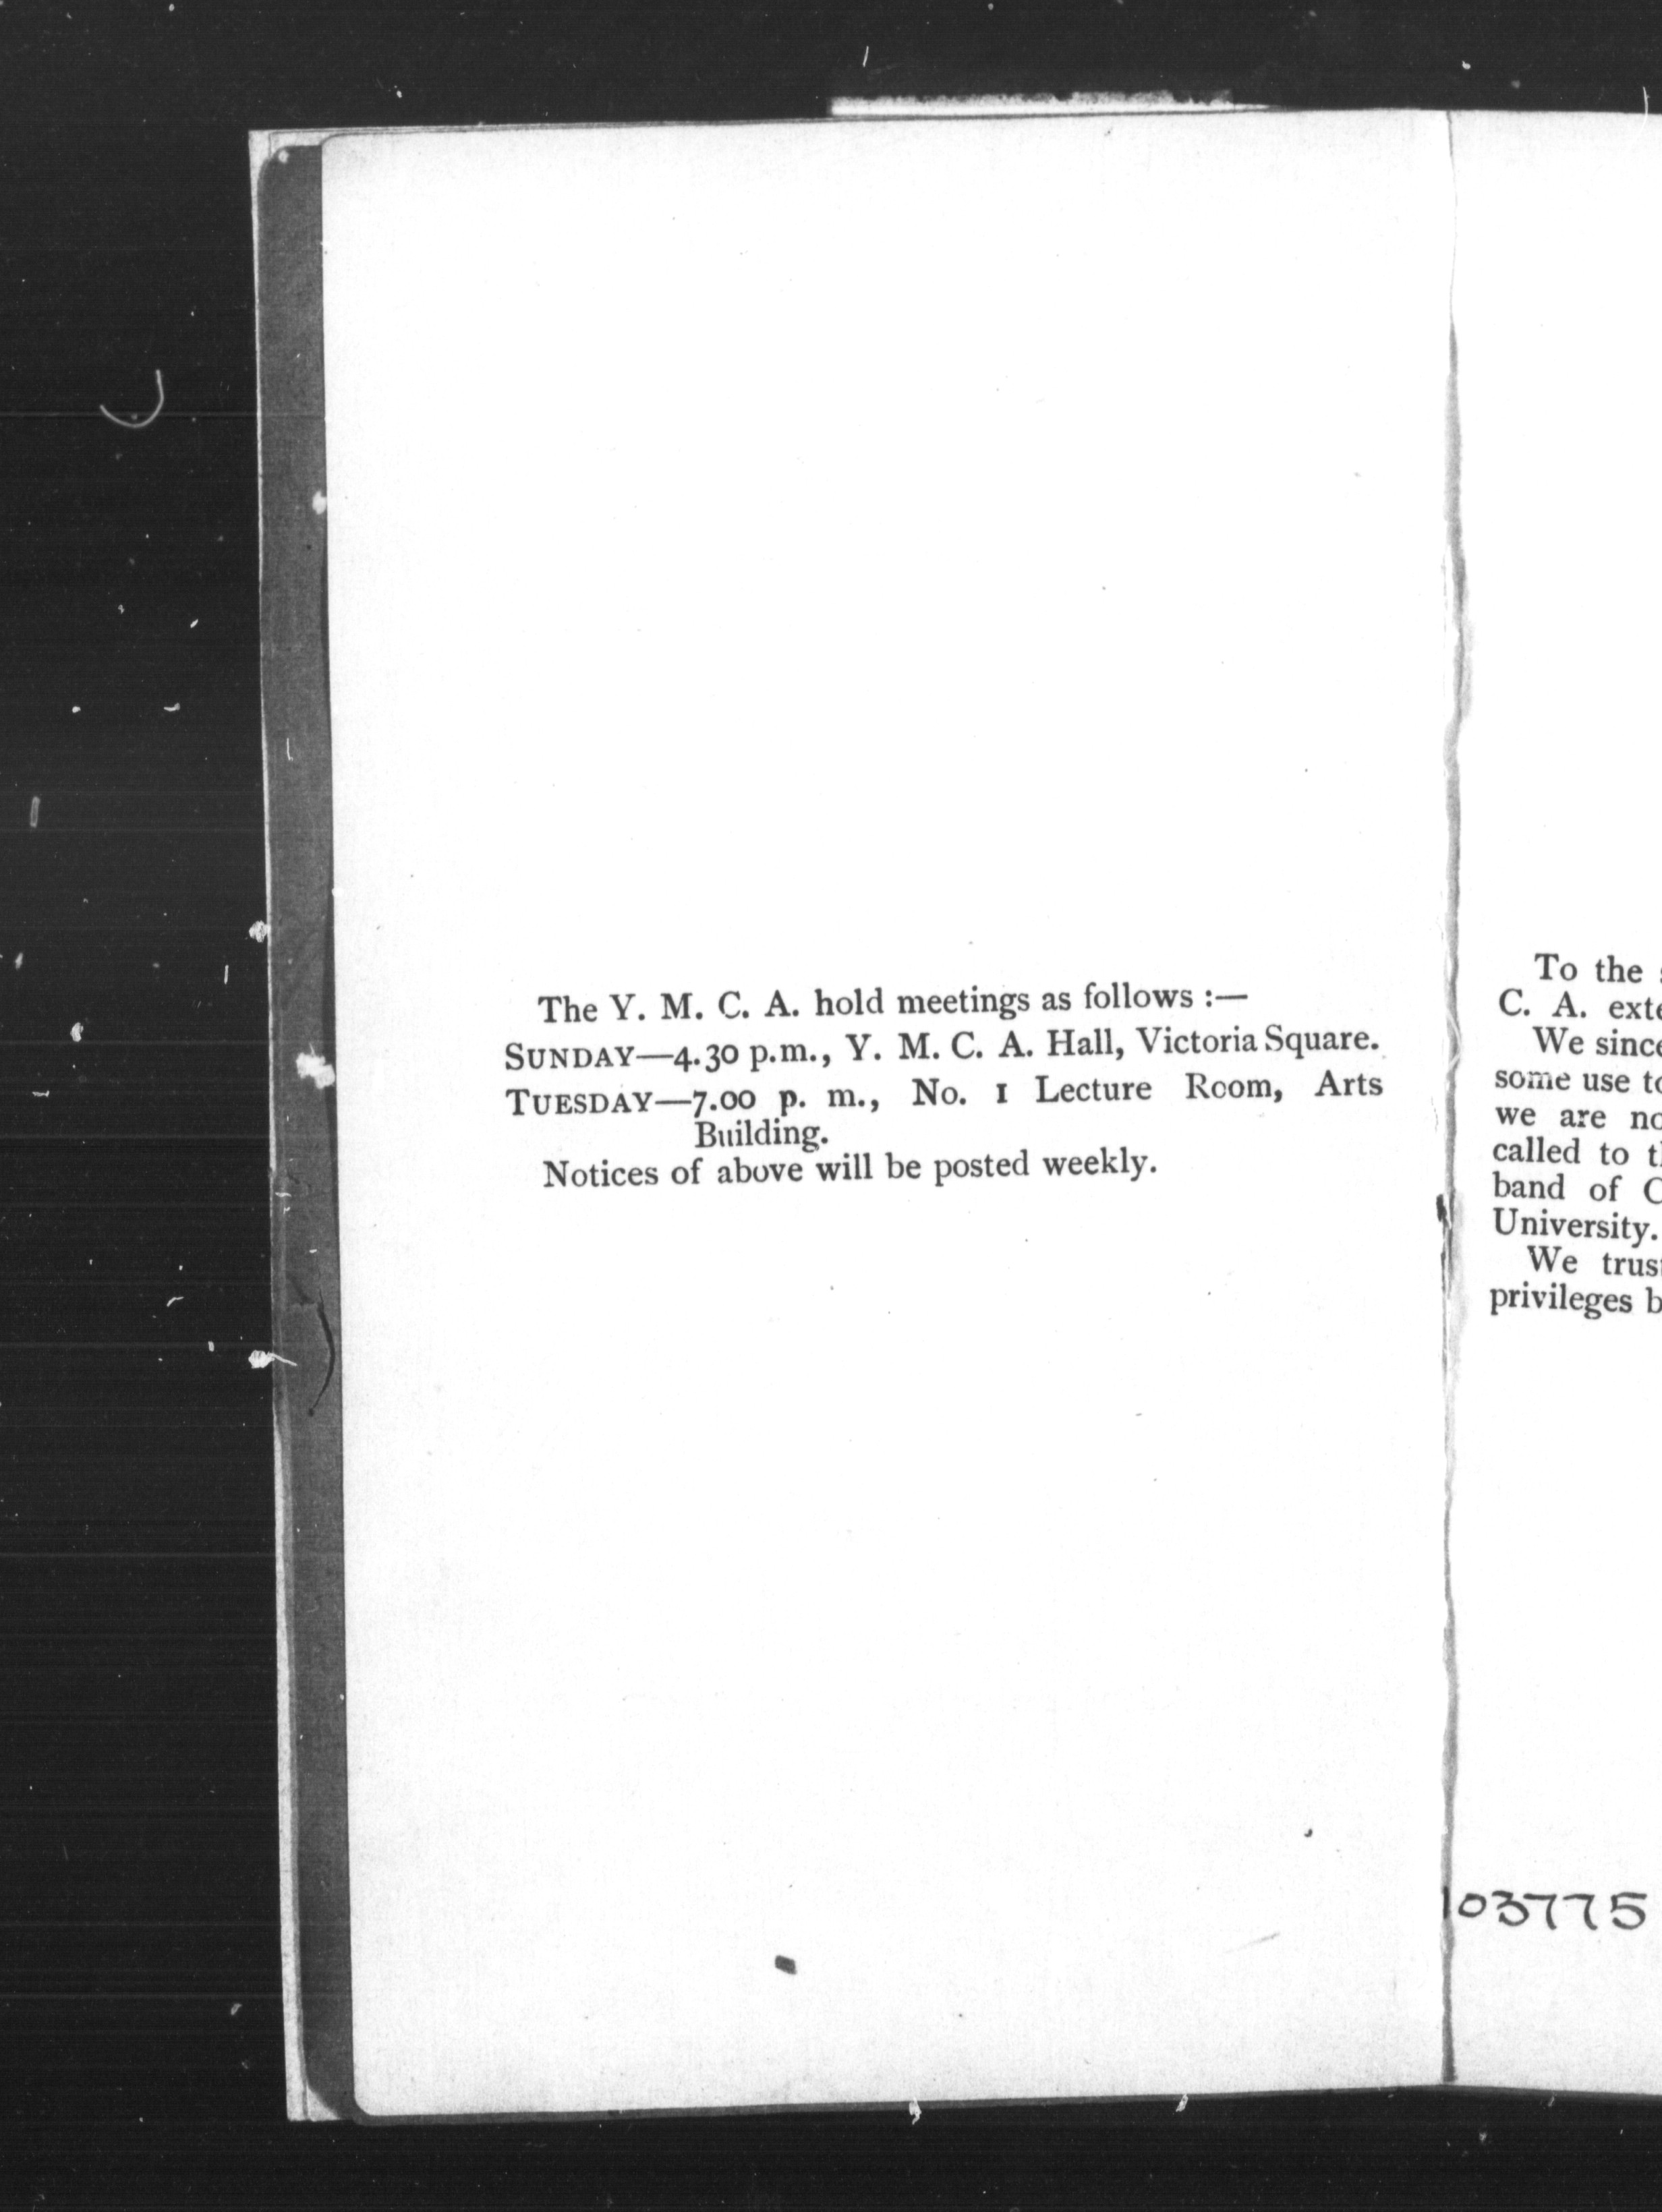 The Y. M. C. A. hold meetings as follows :—
SUNDAY—4.30 p.m., Y. M. C. A. Hall, Victoria Square.
TUESDAY—7.00 p. m., No. 1 Lecture Room, Arts
Building.
Notices of above will be posted weekly.
To the
C. A.
We
some use
we are
called to
band of
University.
We
privileges
103775